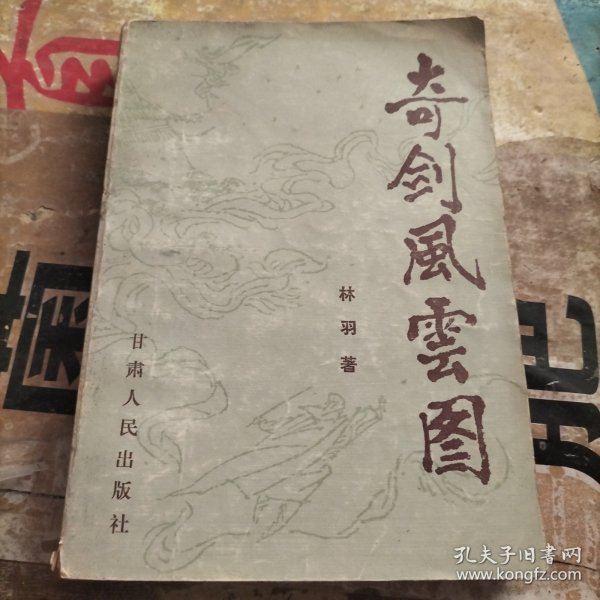 奇剑風雲图
林羽著
甘肃人民出版社
孔夫子旧书网
www.kongfz.com